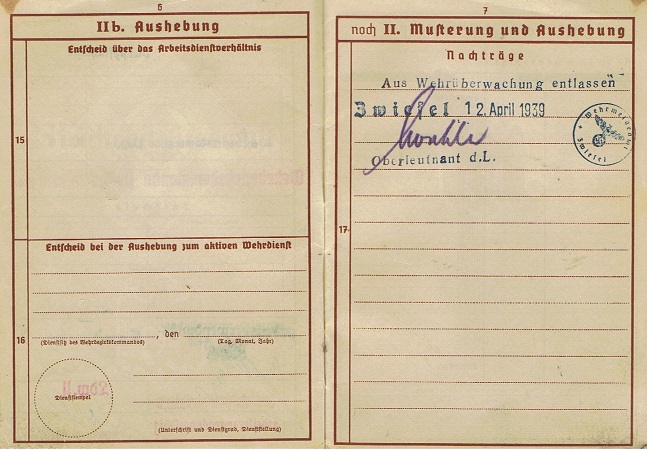 6
II b. Aushebung
Entscheid über das Arbeitsdienstverhältnis
15
Entscheid bei der Aushebung zum aktiven Wehrdienst
16
, den
(Dienstsitz des Wehrbezirkkommandos)
(Tag, Monat, Jahr)
Dienststempel
(Unterschrift und Dienstgrad, Dienststellung)
7
noch II. Musterung und Aushebung
Nachträge
Aus Wehrüberwachung entlassen
Zwiesel 12. April 1939
Oberleutnant d.L.
Wehrmeldeamt
Zwiesel
17